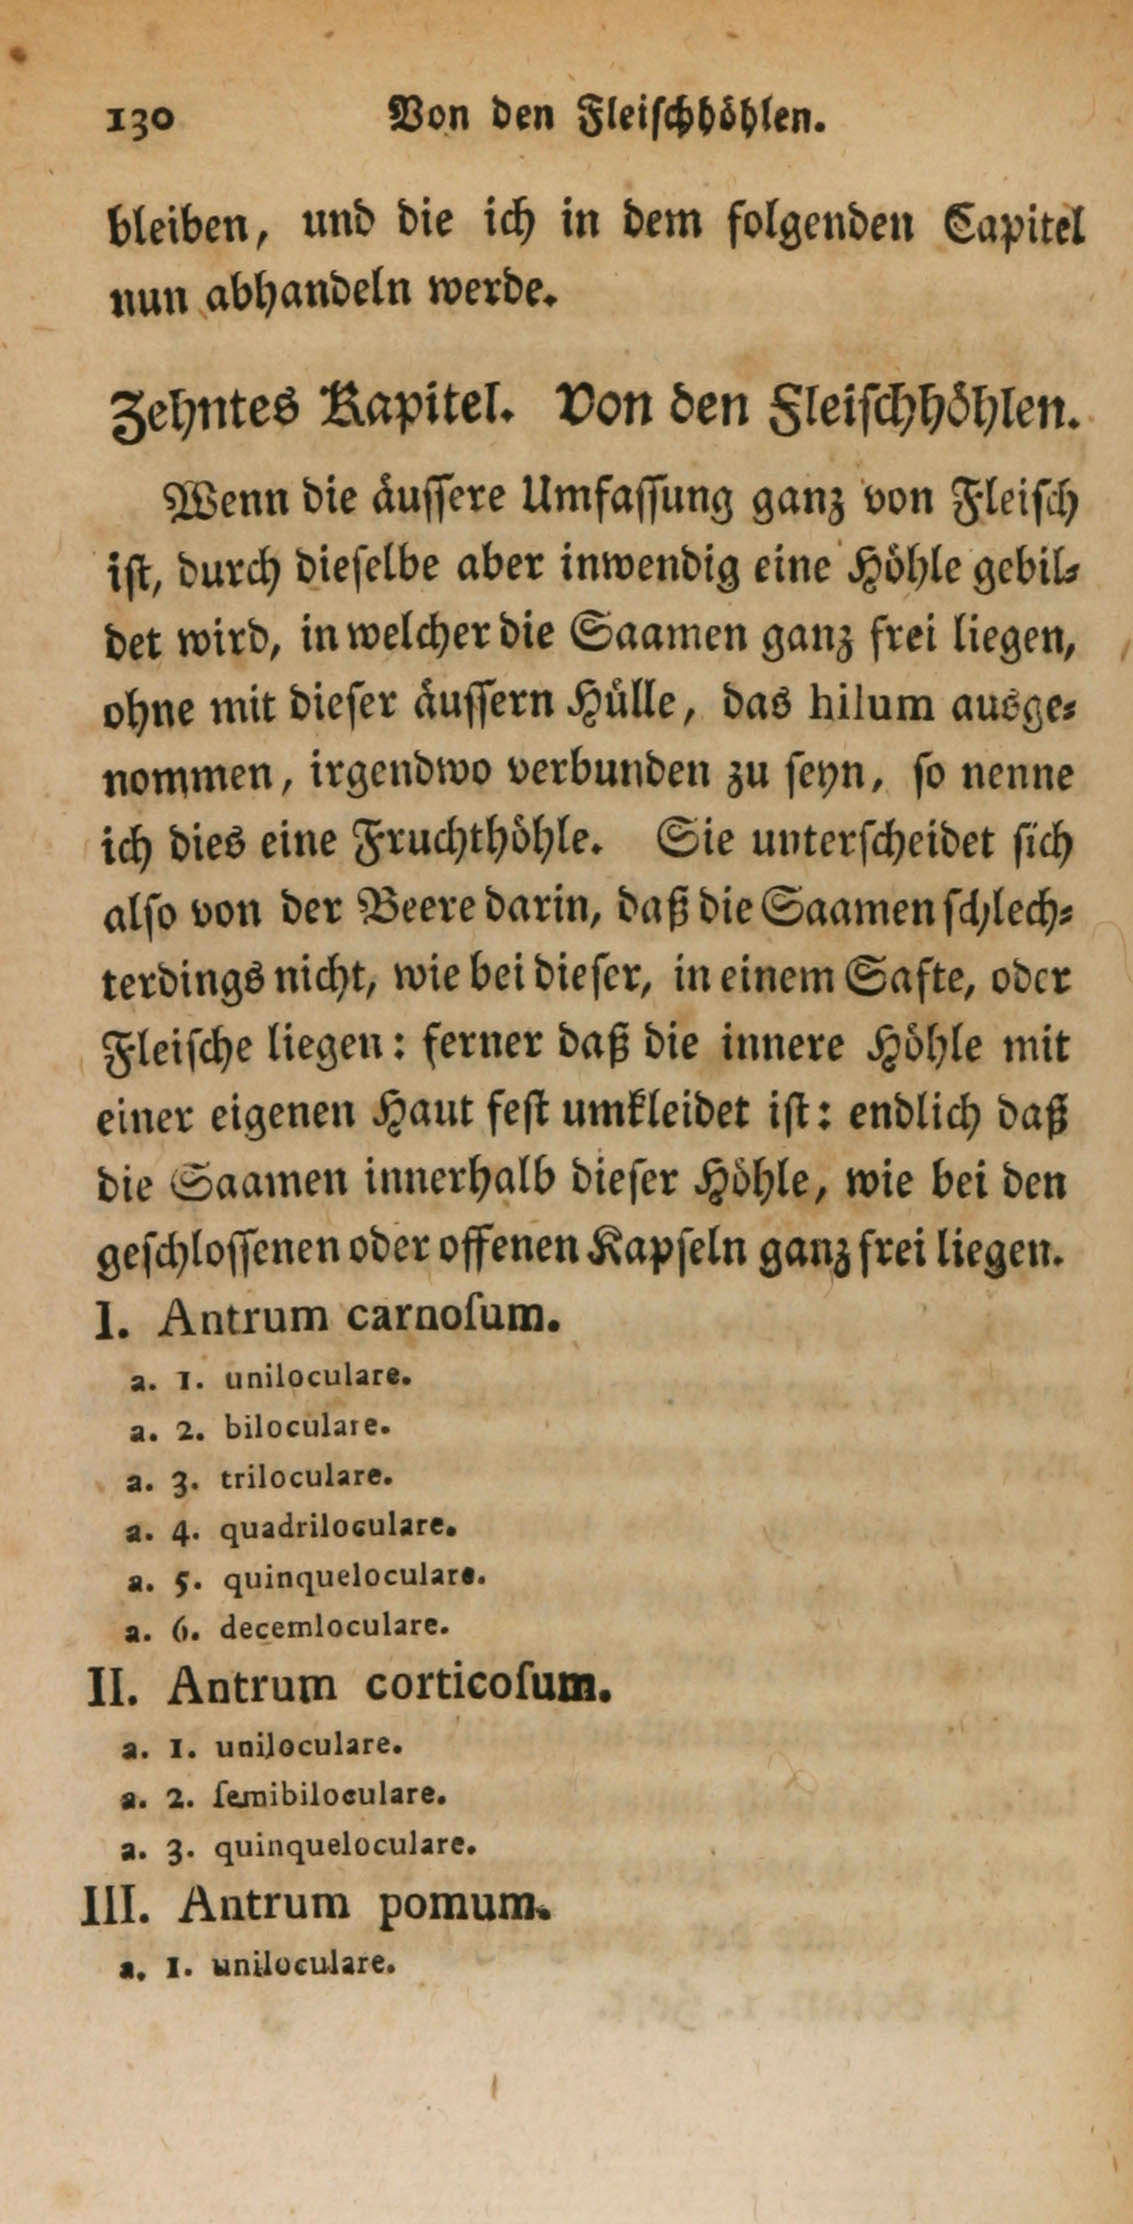 130 Von den Fleischhöhlen.
bleiben, und die ich in dem folgenden Capitel
nun abhandeln werde.
Zehntes Kapitel. Von den Fleischhöhlen.
Wenn die äussere Umfassung ganz von Fleisch
ist, durch dieselbe aber inwendig eine Höhle gebil-
det wird, in welcher die Saamen ganz frei liegen,
ohne mit dieser äussern Hülle, das hilum ausge-
nommen, irgendwo verbunden zu seyn, so nenne
ich dies eine Fruchthöhle. Sie unterscheidet sich
also von der Beere darin, daß die Saamen schlech-
terdings nicht, wie bei dieser, in einem Safte, oder
Fleische liegen: ferner daß die innere Höhle mit
einer eigenen Haut fest umkleidet ist: endlich daß
die Saamen innerhalb dieser Höhle, wie bei den
geschlossenen oder offenen Kapseln ganz frei liegen.
I. Antrum carnoſum.
a. 1. uniloculare.
a. 2. biloculare.
a. 3. triloculare.
a. 4. quadriloculare.
a. 5. quinqueloculare.
a. 6. decemloculare.
II. Antrum corticoſum.
a. 1. uniloculare.
a. 2. ſemibiloculare.
a. 3. quinqueloculare.
III. Antrum pomum.
a. 1. uniloculare.